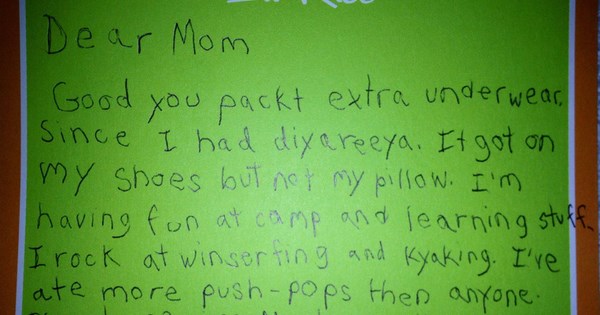 Dear Mom
Good you packt extra underwear.
Since I had diyareeya. It got on
my shoes but not my pillow. I'm
having fun at camp and learning stuff.
I rock at winserfing and kyaking. I've
ate more push-pops then anyone.